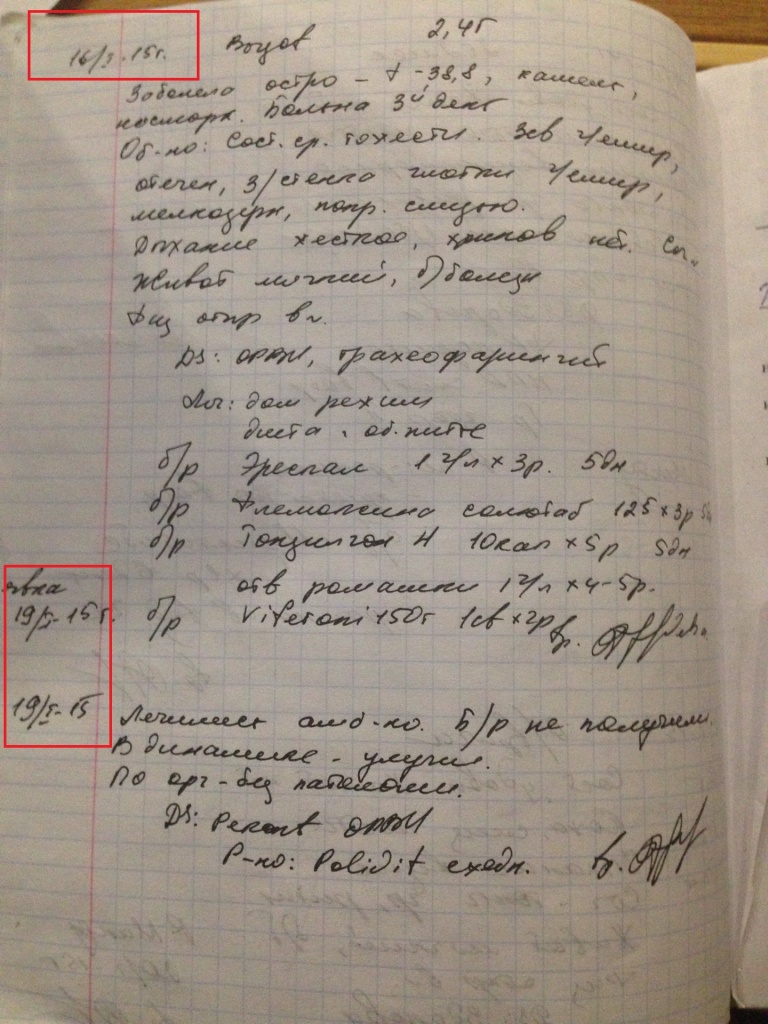 16/I-15г. Вызов 2,4г
Заболела остро - t -38,8, кашель,
насморк. Больна 3й день
Об-но: Сост. ср. тяжести. Зев г/емир,
отечен, з/стенка глотки г/емир,
мелкозерн, покр. слизью.
Дыхание жесткое, хрипов нет.
Живот мягкий, б/болезн
Физ отпр в н.
DS: ОРВИ, трахеофарингит
Леч: дом режим
диета, об. питье
б/р Эреспал 1 ч/л х 3р. 5дн
б/р Флемоксина солютаб 125 х 3р 5дн
б/р Тонзилгон Н 10кап х 5р 5дн
явка отв ромашки 1 ч/л х 4-5р.
19/I-15г. б/р Viferoni 150т 1св х 2р вр.
19/I-15 Лечились амб-но. Б/р не получили.
В динамике - улучш.
По орг-без патологии.
DS: Реконв ОРВИ
Р-но: Polivit ежедн. вр.